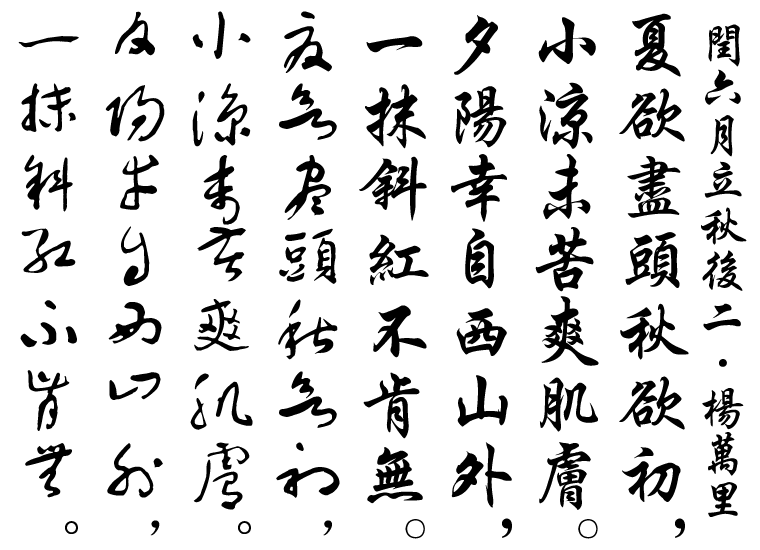 閏六月立秋後二·楊萬里
夏欲盡頭秋欲初，
小涼未苦爽肌膚。
夕陽幸自西山外，
一抹斜紅不肯無。
夏欲盡頭秋欲初，
小涼未苦爽肌膚。
夕陽幸自西山外，
一抹斜紅不肯無。